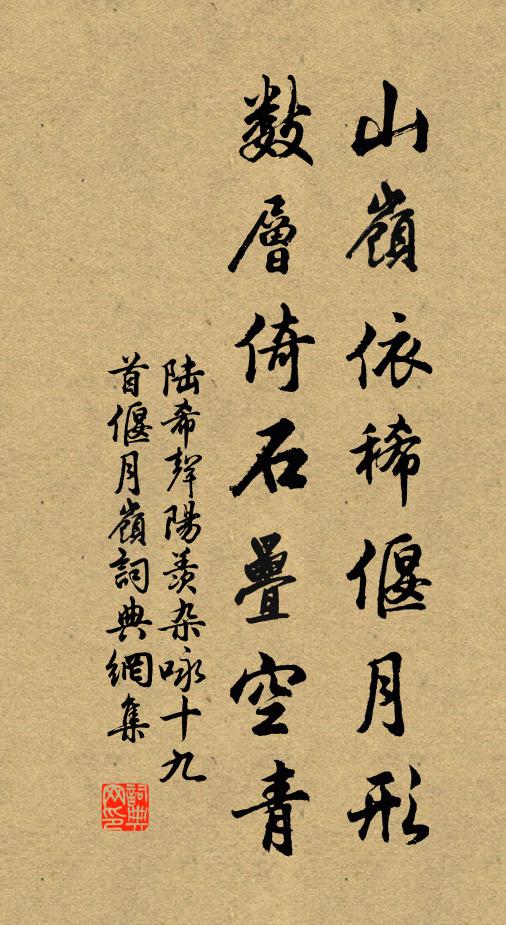 山嶺依稀偃月形
數層倚石疊空青
陆希聲陽羨杂咏十九
首偃月嶺詞典網集
詞典
网印